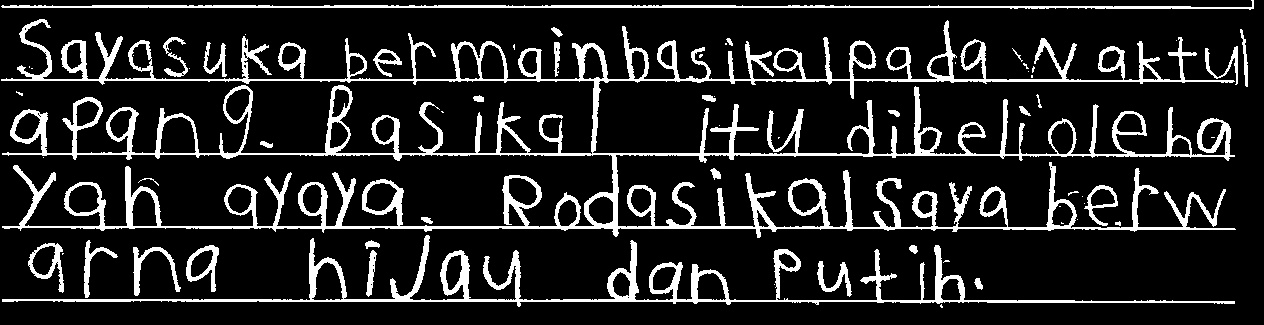 Sayasuka bermainbasikalpada waktul
apang. Basikal itu dibelioleha
yah ayaya. Rodasikalsaya berw
arna hijau dan putih.